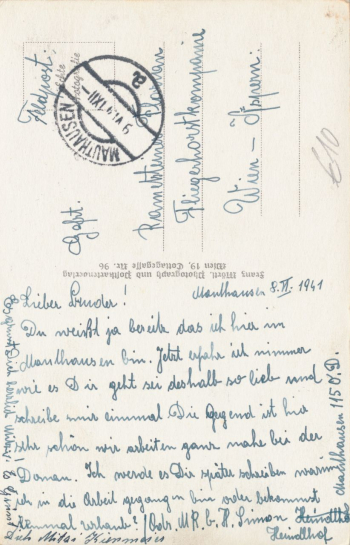 Feldpost!
MAUTHAUSEN
9.VI.41.XII
a
Gefr.
Ramersteiner Florian
Fliegerhorstkompanie
Wien – Aspern.
€10
Franz Mörtl, Photograph und Postkartenverlag
Wien 19, Cottagegasse Nr. 96
Mauthausen 8.VI.1941
Lieber Bruder!
Du weißt ja bereits das ich hier in
Mauthausen bin. Jetzt erfahr ich nimmer
wie es Dir geht sei deshalb so lieb und
schreibe mir einmal Die Gegend ist hir
sehr schön wir arbeiten ganz nahe bei der
Donau. Ich werde es Dir später schreiben warum
ich in die Arbeit gegangen bin oder bekommst
einmal urlaub?
Simon
Heindlhof
Mauthausen 115 O.D.
Es grüßt Dir